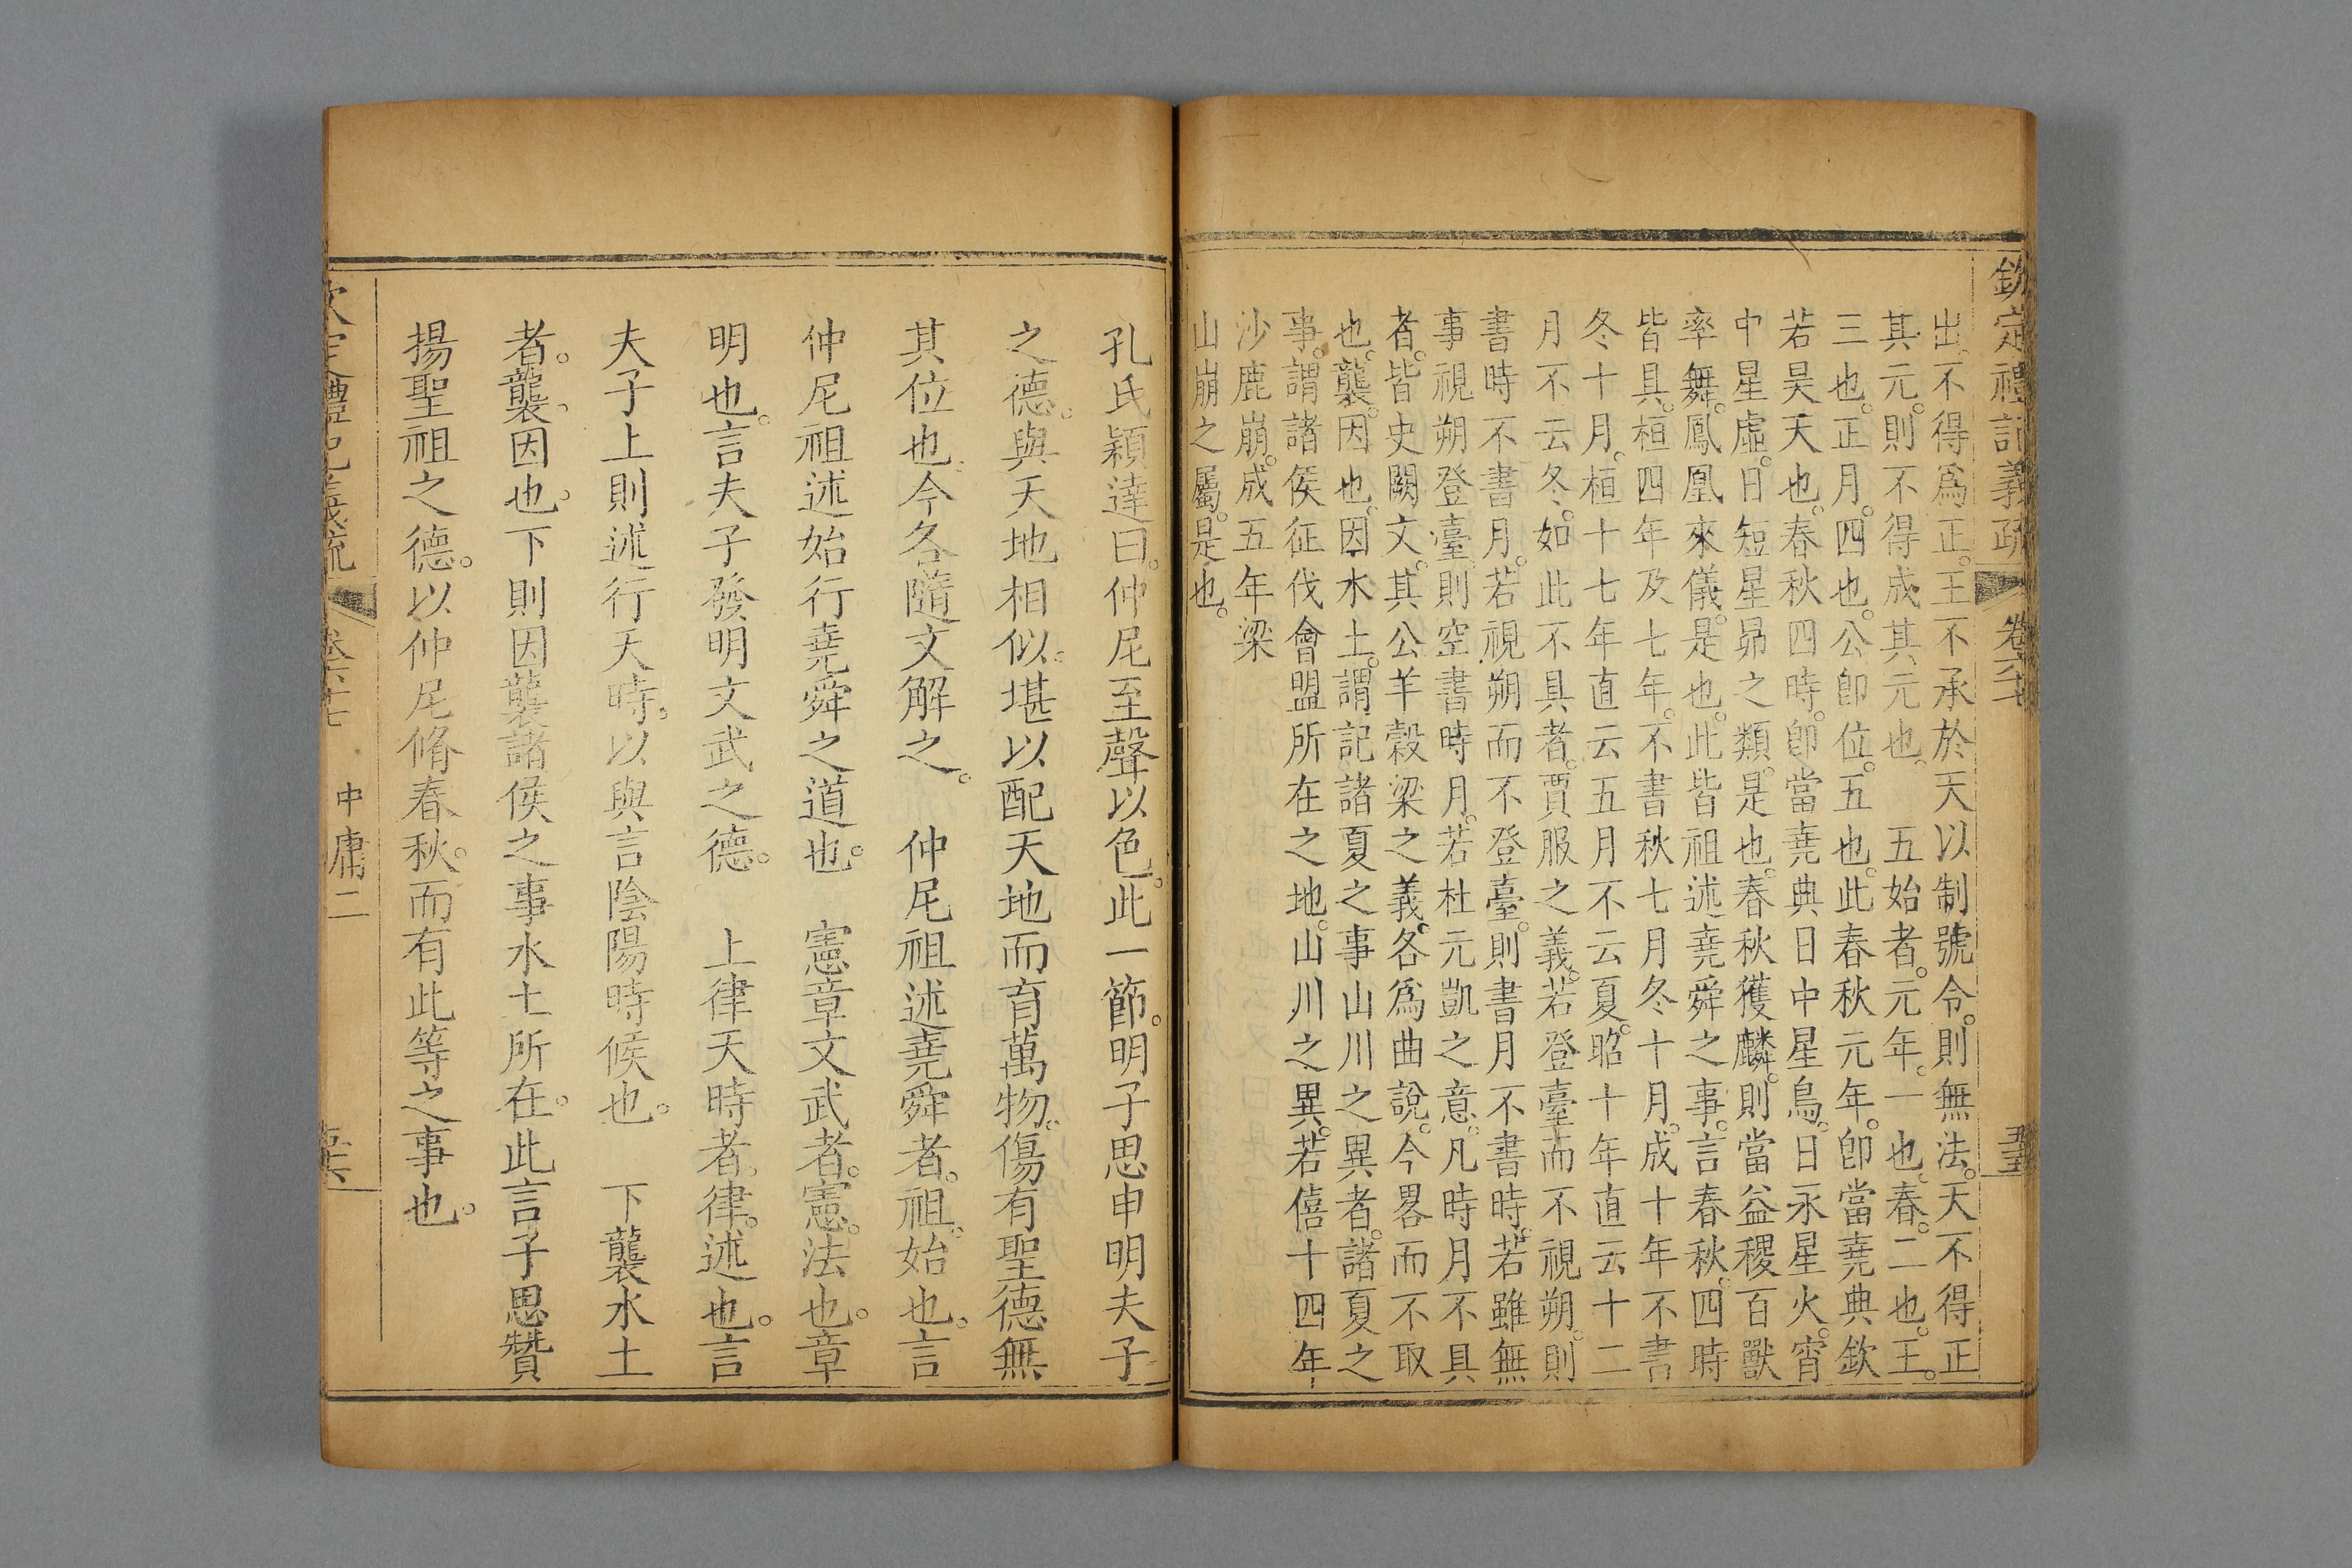 欽定禮記義疏 卷六十七 五十五
出不得爲正。王不承於天以制號令。則無法。天不得正
其元。則不得成其元也。 五始者。元年。一也。春。二也。王。
三也。正月。四也。公卽位。五也。此春秋元年。卽當堯典欽
若昊天也。春秋四時。卽當堯典日中星鳥。日永星火。宵
中星虛。日短星昴之類。是也。春秋獲麟。則當益稷百獸
率舞。鳳凰來儀。是也。此皆祖述堯舜之事。言春秋。四時
皆具。桓四年及七年。不書秋七月冬十月。成十年不書
冬十月。桓十七年直云五月不云夏。昭十年直云十二
月不云冬。如此不具者。賈服之義。若登臺而不視朔。則
書時不書月。若視朔而不登臺。則書月不書時。若雖無
事視朔登臺。則空書時月。若杜元凱之意。凡時月不具
者。皆史闕文。其公羊穀梁之義。各爲曲說。今畧而不取
也。襲。因也。因水土。謂記諸夏之事山川之異者。諸夏之
事。謂諸侯征伐會盟所在之地。山川之異。若僖十四年
沙鹿崩。成五年梁
山崩之屬。是也。
孔氏穎達曰。仲尼至聲以色。此一節。明子思申明夫子
之德。與天地相似。堪以配天地而育萬物。傷有聖德無
其位也。今各隨文解之。 仲尼祖述堯舜者。祖。始也。言
仲尼祖述始行堯舜之道也。 憲章文武者。憲。法也。章
明也。言夫子發明文武之德。 上律天時者。律。述也。言
夫子上則述行天時。以與言陰陽時候也。 下襲水土
者。襲。因也。下則因襲諸侯之事水土所在。此言子思贊
揚聖祖之德。以仲尼脩春秋。而有此等之事也。
欽定禮記義疏 卷六十七 中庸二